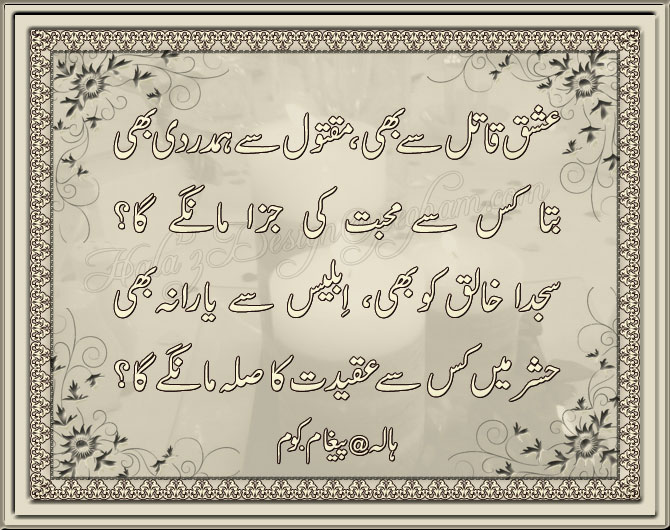 عشق قاتل سے بھی، مقتول سے ہمدردی بھی
بتا کس سے محبت کی جزا مانگے گا؟
سجدا خالق کو بھی، اِبلیس سے یارانہ بھی
حشر میں کس سے عقیدت کا صلہ مانگے گا؟
ہالہ@پیغام.کوم